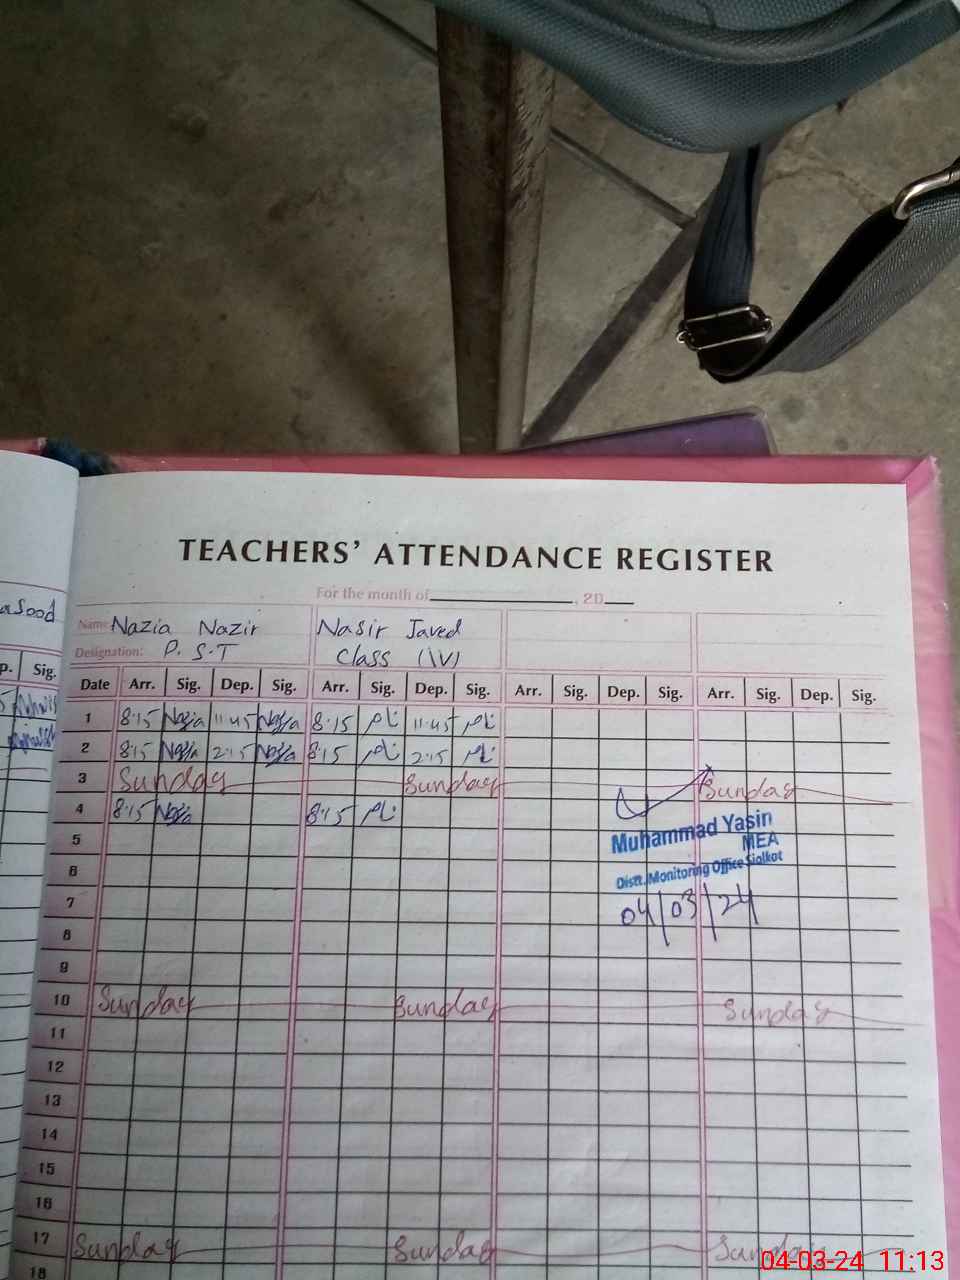 TEACHERS' ATTENDANCE REGISTER
For the month of ____________, 20___
asood
Name: Nazia Nazir Nasir Javed
Designation: P.S.T Class (IV)
p. Sig. Date Arr. Sig. Dep. Sig. Arr. Sig. Dep. Sig. Arr. Sig. Dep. Sig. Arr. Sig. Dep. Sig.
1 8:15 Nazia 11:45 Nazia 8:15 ناصر 11:45 ناصر
2 8:15 Nazia 2:15 Nazia 8:15 ناصر 2:15 ناصر
3 Sunday Sunday Sunday
4 8:15 Nazia 8:15 ناصر
Muhammad Yasin
5 MEA
6 Distt. Monitoring Office Sialkot
7 04/03/24
8
9
10 Sunday Sunday Sunday
11
12
13
14
15
16
17 Sunday Sunday Sunday
18
04-03-24 11:13